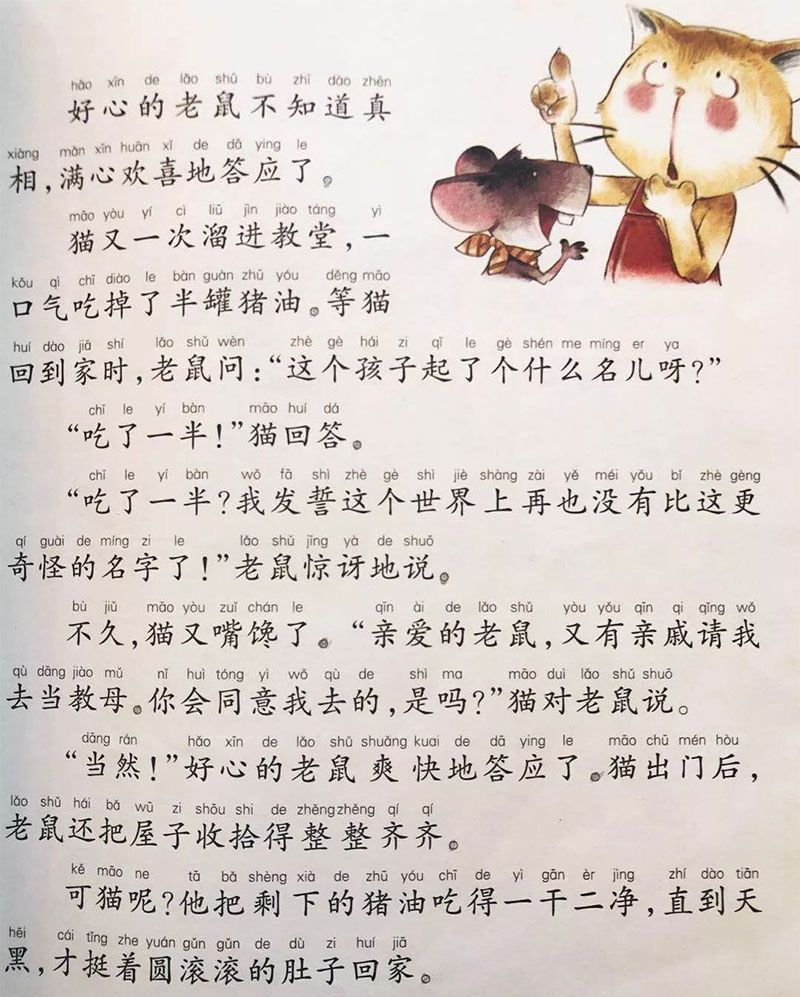 hǎo xīn de lǎo shǔ bù zhī dào zhēn
好心的老鼠不知道真
xiàng mǎn xīn huān xǐ de dā ying le
相,满心欢喜地答应了。
māo yòu yí cì liū jìn jiào táng yì
猫又一次溜进教堂,一
kǒu qì chī diào le bàn guàn zhū yóu děng māo
口气吃掉了半罐猪油。等猫
huí dào jiā shí lǎo shǔ wèn zhè gè hái zi qǐ le gè shén me míng er ya
回到家时,老鼠问:“这个孩子起了个什么名儿呀?”
chī le yí bàn māo huí dá
“吃了一半!”猫回答。
chī le yí bàn wǒ fā shì zhè gè shì jiè shàng zài yě méi yǒu bǐ zhè gèng
“吃了一半?我发誓这个世界上再也没有比这更
qí guài de míng zi le lǎo shǔ jīng yà de shuō
奇怪的名字了!”老鼠惊讶地说。
bù jiǔ māo yòu zuǐ chán le qīn ài de lǎo shǔ yòu yǒu qīn qi qǐng wǒ
不久,猫又嘴馋了。“亲爱的老鼠,又有亲戚请我
qù dāng jiào mǔ nǐ huì tóng yì wǒ qù de shì ma māo duì lǎo shǔ shuō
去当教母。你会同意我去的,是吗?”猫对老鼠说。
dāng rán hǎo xīn de lǎo shǔ shuǎng kuai de dā ying le māo chū mén hòu
“当然!”好心的老鼠爽快地答应了。猫出门后,
lǎo shǔ hái bǎ wū zi shōu shi de zhěng zhěng qí qí
老鼠还把屋子收拾得整整齐齐。
kě māo ne tā bǎ shèng xià de zhū yóu chī de yì gān èr jìng zhí dào tiān
可猫呢?他把剩下的猪油吃得一干二净,直到天
hēi cái tǐng zhe yuán gǔn gǔn de dù zi huí jiā
黑,才挺着圆滚滚的肚子回家。